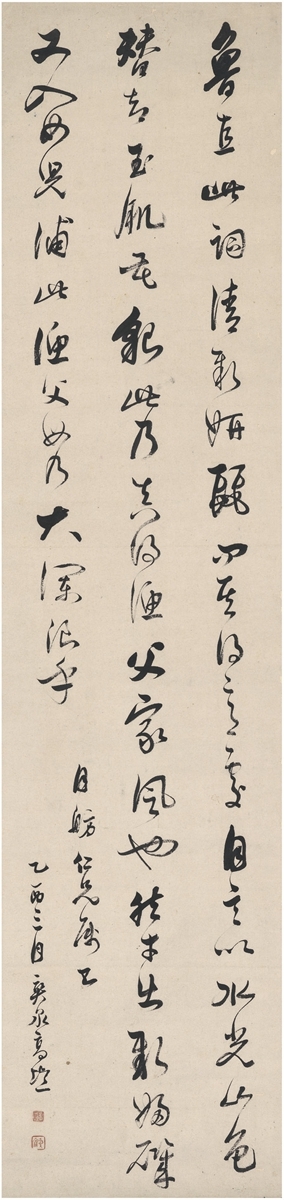 魯直此詞清新妍麗問其得意處自言以水光山色
替却玉肌花貌此乃真得漁父家風也然才出新婦磯
又入女兒浦此漁父毋乃大瀾浪乎
月舫仁兄屬正
乙酉三月爽泉高塏